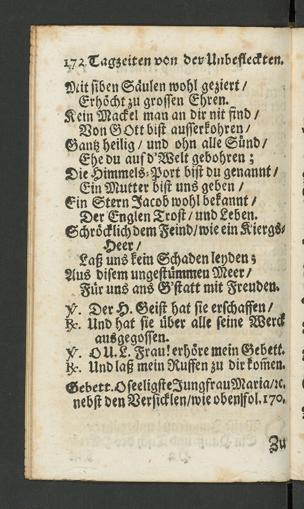 172 Tagzeiten von der Unbefleckten.
Mit siben Säulen wohl geziert /
Erhöcht zu grossen Ehren.
Kein Mackel man an dir nit find /
Von GOtt bist ausserkohren /
Gantz heilig / und ohn alle Sünd /
Ehe du auf d'Welt gebohren ;
Die Himmels-Port bist du genannt /
Ein Mutter bist uns geben /
Ein Stern Jacob wohl bekannt /
Der Englen Trost / und Leben.
Schröcklich dem Feind / wie ein Kiergs-
Heer /
Laß uns kein Schaden leyden ;
Aus disem ungestümmen Meer /
Für uns ans G'statt mit Freuden.
℣. Der H. Geist hat sie erschaffen /
℟. Und hat sie über alle seine Werck
ausgegossen.
℣. O U. L. Frau! erhöre mein Gebett.
℟. Und laß mein Ruffen zu dir kom̃en.
Gebett. O seeligste Jungfrau Maria / ꝛc.
nebst den Versicklen / wie oben / fol. 170.
Zu